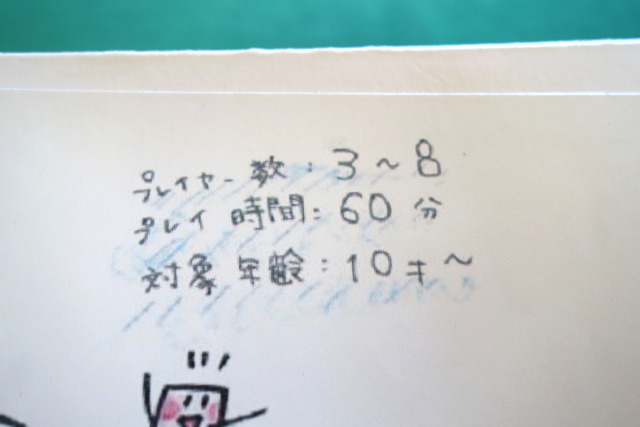 プレイヤー数：3～8
プレイ時間：60分
対象年齢：10才～